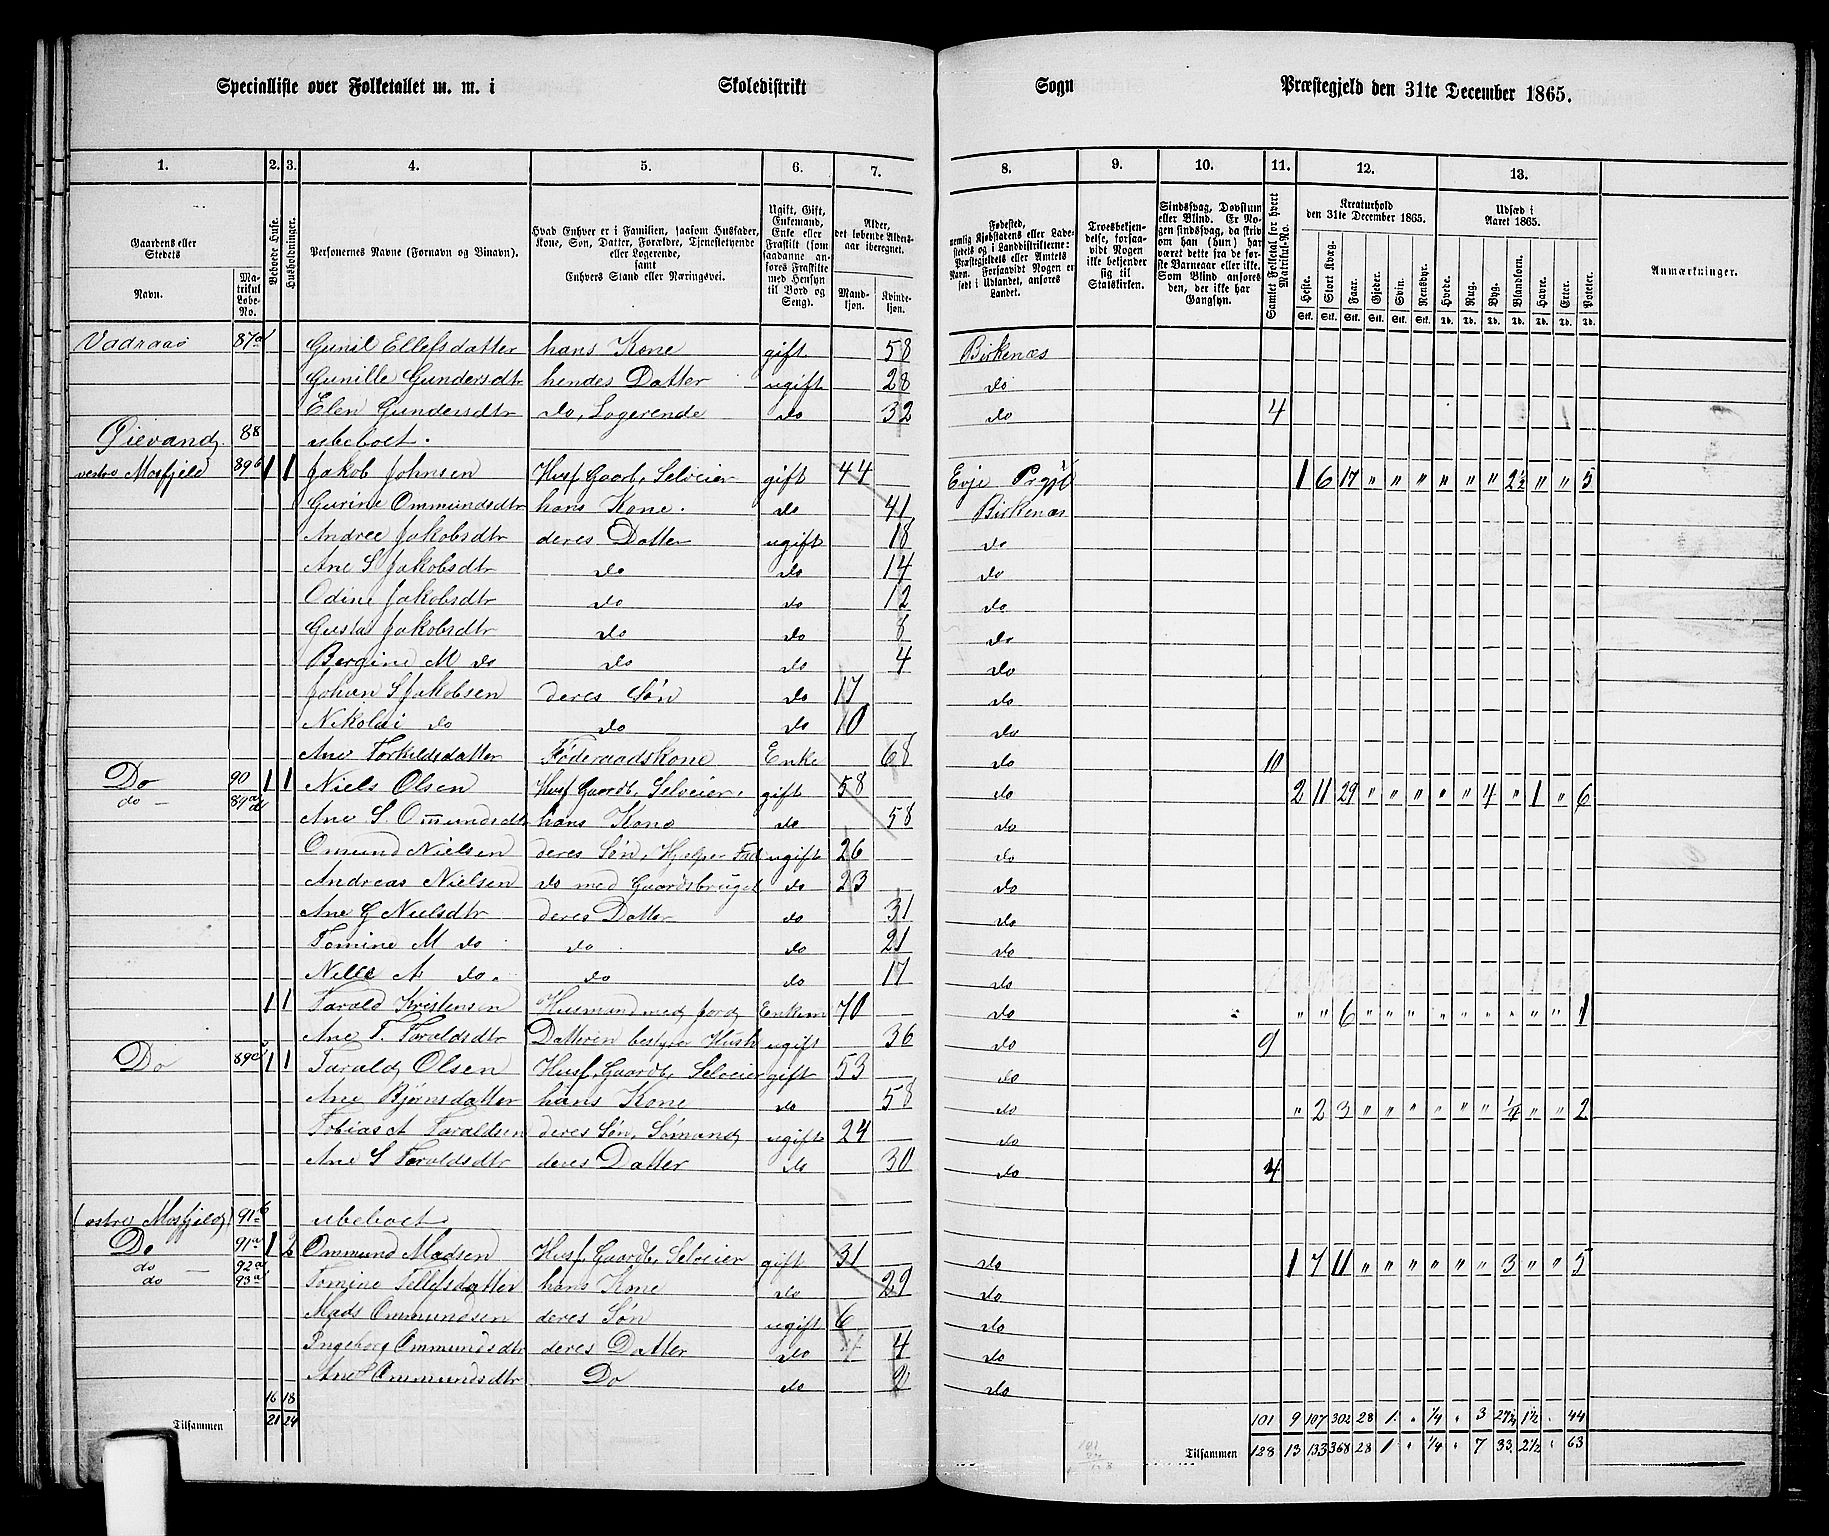 Specialliste over Folketallet m. m. i Skoledistrikt Sogn Præstegjeld den 31te December 1865.
1. 2. 3. 4. 5. 6. 7. 8. 9. 10. 11. 12. 13.
Gaardens eller Stedets
Navn.
Matrikul Løbe-No.
Beboede Huse.
Husholdninger.
Personernes Navne (Fornavn og Binavn).
Hvad Enhver er i Familien, saasom Husfader, Kone, Søn, Datter, Forældre, Tjenestetyende eller Logerende, samt Enhvers Stand eller Næringsvei.
Ugift, Gift, Enkemand, Enke eller Fraskilt (som saadanne anføres Fraskilte med Hensyn til Bord og Seng).
Alder, det løbende Alders-aar iberegnet.
Mandkjøn. Kvindekjøn.
Fødested, nemlig Kjøbstadens eller Ladestedets og i Landdistrikterne: Præstegjeldets eller Amtets Navn. Forsaavidt Nogen er født i Udlandet, anføres Landet.
Troesbekjendelse, forsaavidt Nogen ikke bekjender sig til Statskirken.
Sindssvag, Døvstum eller Blind. Er Nogen sindssvag, da skrives om han (hun) har været dette fra de første Barneaar eller ikke. Som Blind anføres den, der ikke har Gangsyn.
Samlet Folketal for hvert Matrikul-No.
Kreaturhold den 31te December 1865.
Heste. Stort Kvæg. Faar. Gjeder. Svin. Rensdyr.
Stk. Stk. Stk. Stk. Stk. Stk.
Udsæd i Aaret 1865.
Hvede. Rug. Byg. Blandkorn. Havre. Erter. Poteter.
Td. Td. Td. Td. Td. Td. Td.
Anmærkninger.
Vadraas 87a Gunil Ellefsdatter hans Kone gift 58 Birkenæs
Gunille Gundersdtr hendes Datter ugift 28 do
Elen Gundersdtr do, Logerende do 32 do 4
88 ubeboet.
vestre Mosfjeld 89b 1 1 Jakob Johnsen Husf, Gaardb, Selveier gift 44 Evje Prgjd 1 6 17 " " " " " " 2½ " " 5
Gurine Ommundsdtr hans Kone. do 41 Birkenæs
Andree Jakobsdtr deres Datter ugift 18 do
Ane S Jakobsdtr do do 14 do
Odine Jakobsdtr do do 12 do
Gusta Jakobsdtr do do 8 do
Bergine M do do do 4 do
Johan S Jakobsen deres Søn do 17 do
Nikolai do do do 10 do
Ane Torkildsdatter Føderaadskone Enke 68 do 10
Do 90 1 1 Niels Olsen Husf, Gaardb, Selveier. gift 58 do 2 11 29 " " " " " 4 " 1 " 6
do 89a
Ane S Omundsdtr hans Kone do 58 do
Omund Nielsen deres Søn, Hjelper Fad ugift 26 do
Andreas Nielsen do med Gaardsbruget do 23 do
Ane G Nielsdtr deres Datter do 31 do
Tomine M do do do 21 do
Nille A do. do do 17 do
1 1 Tarald Kristensen Husmand med Jord, Enkem 70 do " " 6 " " " " " " " " " 1
Ane T. Taraldsdtr Datteren bestyrer Hush ugift 36 do 9
Do 89c 1 1 Tarald Olsen Husf, Gaardb, Selveier gift 53 do
Ane Bjørnsdatter hans Kone do 58 do " 2 3 " " " " " " ¼ " " 2
Tobias A Taraldsen deres Søn, Sømand, ugift 24 do
Ane S Taraldsdtr deres Datter do 30 do 4
(østre Mosfjeld) 91b ubeboet
Do 91a 1 2 Ommund Madsen Husf, Gaardb, Selveier gift 31 do 1 7 11 " " " " " " 3 " " 5
do 92a
do 93a Tomine Tellefsdatter hans Kone do 29 do
Mads Ommundsen deres Søn ugift 6 do
Ingeborg Ommundsdtr deres Datter do 4 do
Ane Ommundsdtr Do do 2 do
16 18 101 9 107 302 28 1 " ¼ " 3 27¼ 1½ " 44
Tilsammen 21 24 Tilsammen 128 13 133 368 28 1 " ¼ " 7 33 2½ " 63